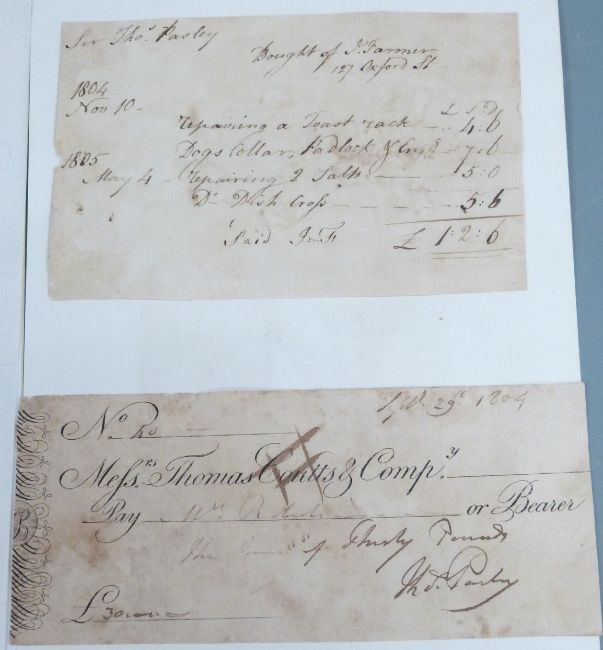 Sir Thos. Pasley
Bought of J. Farmer
127 Oxford St
1804
£ S D
Nov 10 - repairing a Toast rack - - 4:6
Dogs Collar, Padlock & Engg. - 7:6
1805
May 4 - repairing 2 Salts - - 5:0
Do Dish Cross - - - - 5:6
Paid J. F. £ 1:2:6
Sepr. 29th 1804
No.
Messrs. Thomas Coutts & Compy.
Pay Mr. or Bearer
the sum of Thirty Pounds
Thos. Pasley
£30